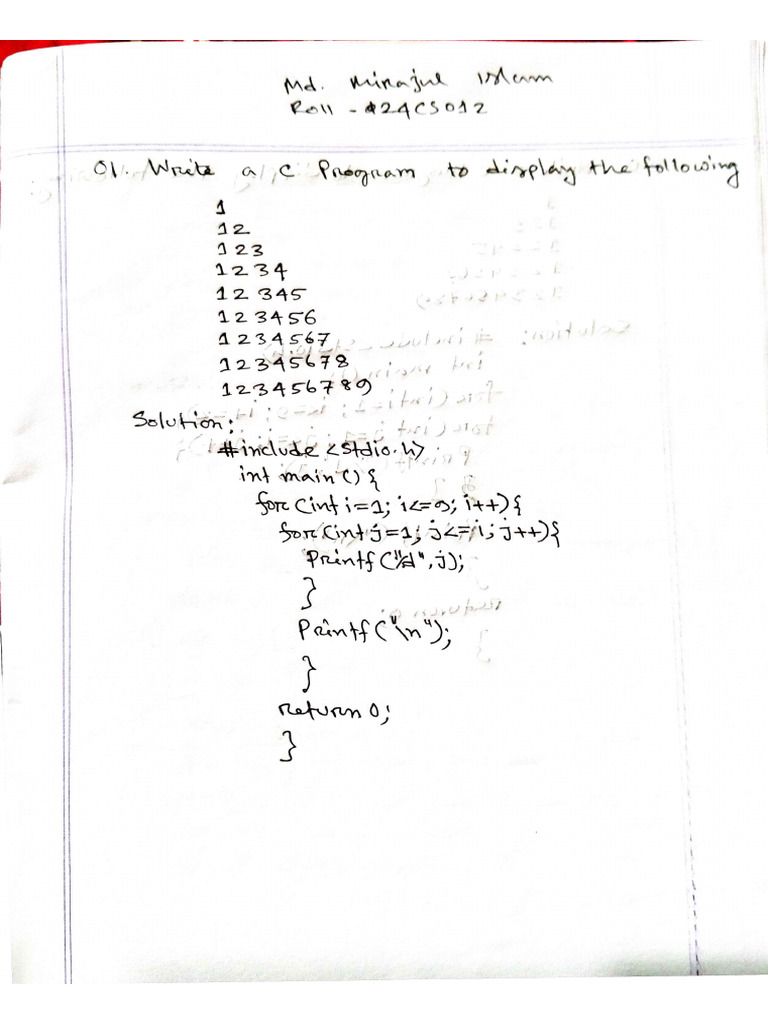 Md. Minajul Islam
Roll - 24CS012
01. Write a C Program to display the following
1
12
123
1234
12345
123456
1234567
12345678
123456789
Solution:
#include <stdio.h>
int main() {
for (int i=1; i<=9; i++) {
for (int j=1; j<=i; j++) {
Printf("%d", j);
}
Printf("\n");
}
return 0;
}